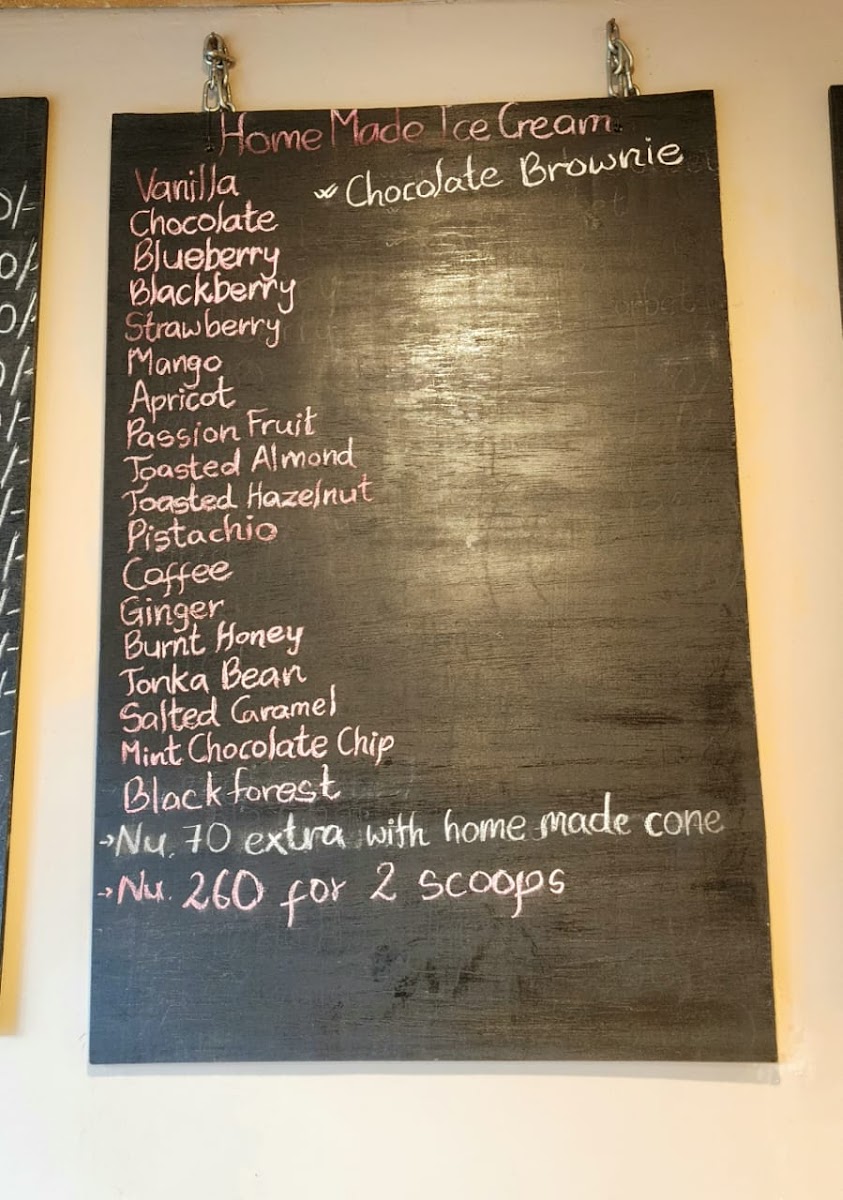 Home Made Ice Cream
Vanilla
Chocolate
Blueberry
Blackberry
Strawberry
Mango
Apricot
Passion Fruit
Toasted Almond
Toasted Hazelnut
Pistachio
Coffee
Ginger
Burnt Honey
Tonka Bean
Salted Caramel
Mint Chocolate Chip
Blackforest
Chocolate Brownie
→Nu. 70 extra with home made cone
→Nu. 260 for 2 scoops
0/-
0/-
0/-